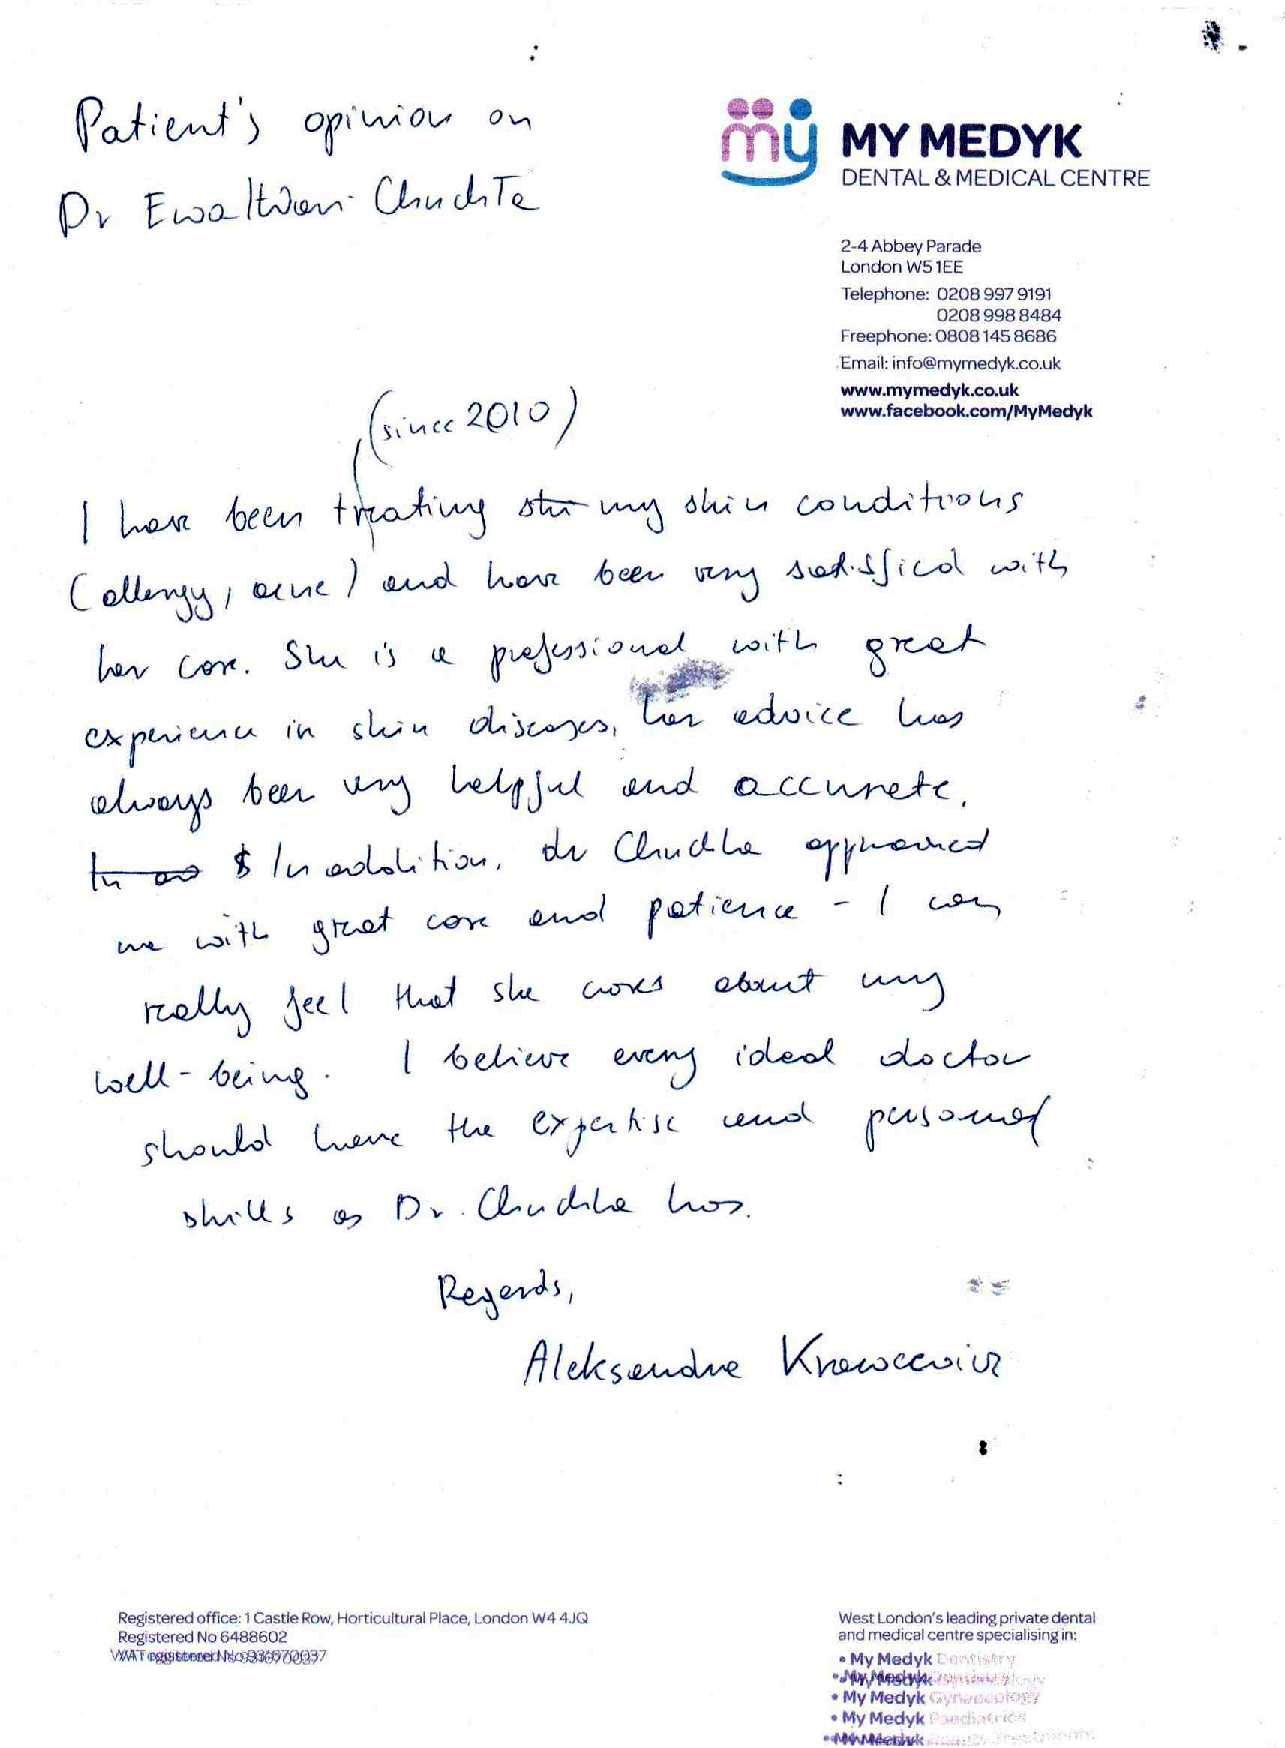 Patient's opinion on
Dr Ewa Chudha
my
MY MEDYK
DENTAL & MEDICAL CENTRE
2-4 Abbey Parade
London W5 1EE
Telephone: 0208 997 9191
0208 998 8484
Freephone: 0808 145 8686
Email: info@mymedyk.co.uk
www.mymedyk.co.uk
www.facebook.com/MyMedyk
(since 2010)
I have been treating my skin conditions
(allergy, acne) and have been very satisfied with
her care. She is a professional with great
experience in skin diseases, her advice has
always been very helpful and accurate.
In addition, dr Chudha approached
me with great care and patience - I can
really feel that she cares about my
well-being. I believe every ideal doctor
should have the expertise and personal
skills as Dr. Chudha has.
Regards,
Aleksandra Krawcewicz
Registered office: 1 Castle Row, Horticultural Place, London W4 4JQ
Registered No 6488602
VAT registered No
West London's leading private dental
and medical centre specialising in:
• My Medyk Dentistry
• My Medyk
• My Medyk Gynaecology
• My Medyk Paediatrics
• My Medyk Treatments